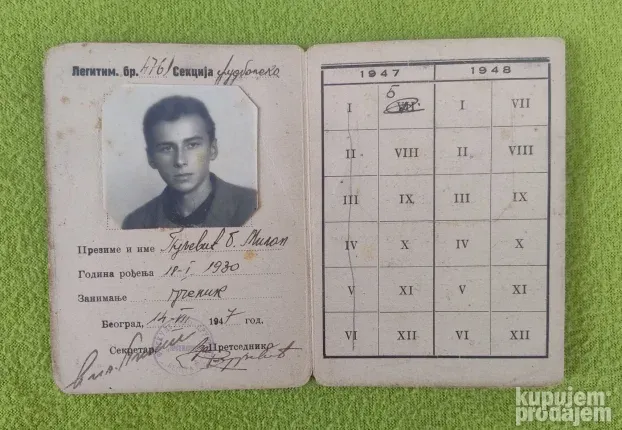 Легитим. бр. 4761 Секција фудбалска
Презиме и име Ђурђевић Б. Милан
Година рођења 18-I 1930
Занимање ученик
Београд, 14-VII 1947 год.
Секретар Претседника
1947 1948
5
I VII I VII
II VIII II VIII
III IX III IX
IV X IV X
V XI V XI
VI XII VI XII
kupujem
prodajem